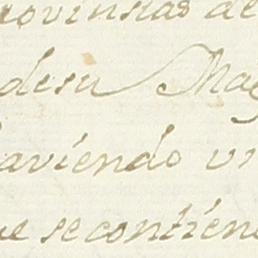 rovinsias de
desu Mag
haviendo vi
ue se contiene